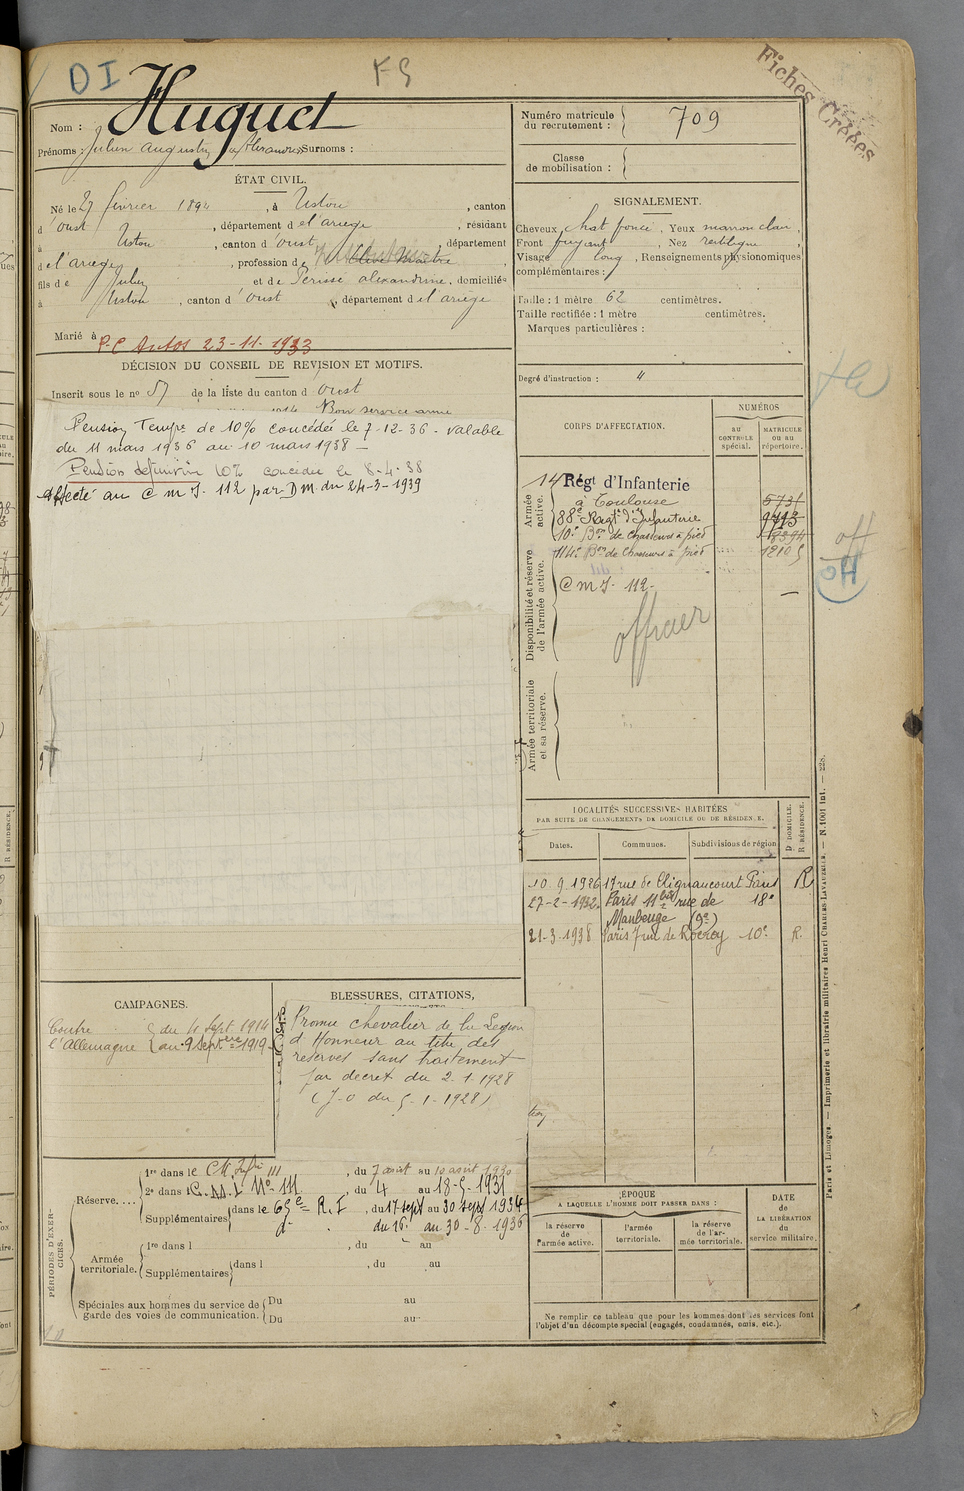 DI
FS
Fiches Créées
Huguet
Nom :
Prénoms : Julien Augustin Alexandre Surnoms :
Numéro matricule du recrutement : 709
Classe de mobilisation :
ÉTAT CIVIL.
Né le 27 février 1894, à Ustou, canton
d'Oust, département de l'ariège, résidant
à Ustou, canton d'oust, département
de l'ariège, profession de
fils de Julien et de Périssé alexandrine, domiciliés
à Ustou, canton d'oust, département de l'ariège
Marié à
P.C Autos 23-11-1933
SIGNALEMENT.
Cheveux chat foncé, Yeux marron clair,
Front fuyant, Nez rectiligne,
Visage long, Renseignements physionomiques
complémentaires :
Taille : 1 mètre 62 centimètres.
Taille rectifiée : 1 mètre centimètres.
Marques particulières :
Degré d'instruction : 4
DÉCISION DU CONSEIL DE REVISION ET MOTIFS.
Inscrit sous le no 57 de la liste du canton d'oust
1914 Bon service armé
Pension Tempre de 10% concédée le 7-12-36 - valable
du 11 mars 1936 au 10 mars 1938 —
Pension définitive 10% concédée le 8-4-38
affecté au C m I. 112 par DM. du 24-3-1939
CORPS D'AFFECTATION.
NUMÉROS
AU CONTRÔLE spécial.
MATRICULE ou au répertoire.
Armée active.
14 Régt d'Infanterie
à Toulouse 5731
88e Régt d'Infanterie 9713
10e Bon de Chasseurs à pied 8394
114e Bon de Chasseurs à pied 12105
Disponibilité et réserve de l'armée active.
C m I. 112 - —
officier
Armée territoriale et sa réserve.
off
LOCALITÉS SUCCESSIVES HABITÉES
PAR SUITE DE CHANGEMENTS DE DOMICILE OU DE RÉSIDENCE.
Dates. Communes. Subdivisions de région
D. DOMICILE. R. RÉSIDENCE.
10.9.1926 17 rue de Clignancourt Paris R
27-2-1932. Paris 11bis rue de 18e
Maubeuge (9e)
21-3-1938 Paris 7 rue de Rocroy 10e R.
CAMPAGNES.
Contre l'Allemagne
du 4 Sept 1914
au 9 Septbre 1919
BLESSURES, CITATIONS,
Promu chevalier de la Légion
d'Honneur au titre des
réserves sans traitement
par décret du 2-1-1928
(J-O du 5-1-1928)
PÉRIODES D'EXERCICES.
Réserve....
1re dans le CM Infie III, du 7 août au 10 août 1930
2e dans l C.M.I No III, du 4 au 18-5-1931
Supplémentaires dans le 65e R.I, du 17 sept au 30 sept 1934
d° du 16 au 30-8-1936
Armée territoriale.
1re dans l , du au
Supplémentaires dans l , du au
Spéciales aux hommes du service de garde des voies de communication.
Du au
Du au
ÉPOQUE
A LAQUELLE L'HOMME DOIT PASSER DANS :
la réserve de l'armée active.
l'armée territoriale.
la réserve de l'armée territoriale.
DATE de LA LIBÉRATION du service militaire.
Ne remplir ce tableau que pour les hommes dont les services font
l'objet d'un décompte spécial (engagés, condamnés, omis, etc.).
Paris et Limoges. — Imprimerie et librairie militaires Henri CHARLES-LAVAUZELLE. — N. 1001 int. — 228.